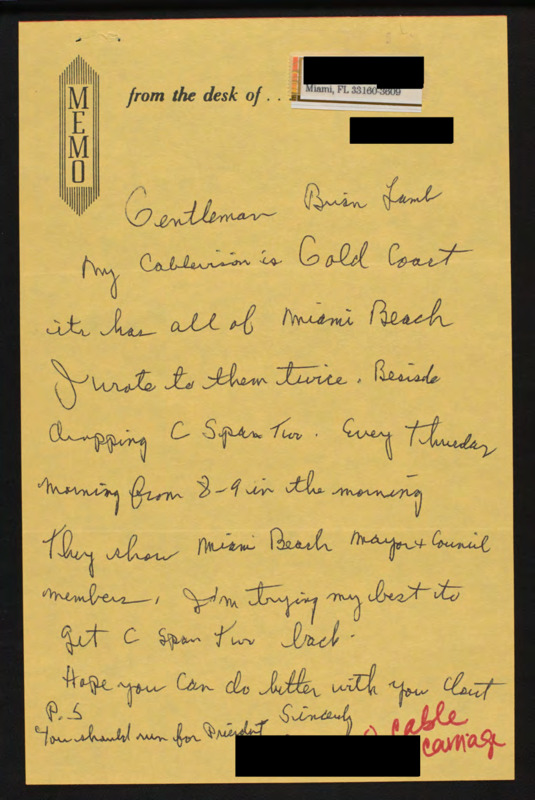 MEMO
from the desk of . .
Miami, FL 33160-3609
Gentleman Brian Lamb
My Cablevision is Gold Coast
its has all of Miami Beach
I wrote to them twice. Beside
dropping C Span Two. Every Thursday
morning from 8-9 in the morning
They show Miami Beach Mayor + Council
members, I'm trying my best to
get C Span Two back.
Hope you can do better with you clout
Sincerely
P.S
You should run for Presidnt
cable
carriage